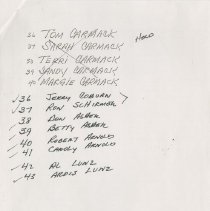 36 TOM CARMACK
37 SARAH CARMACK HOLD
38 TERRI CARMACK
39 SANDY CARMACK
40 MARGIE CARMACK
✓36 JERRY COBURN
✓37 RON SCHIRMER
✓38 DON ALBER
✓39 BETTY ALBER
✓40 ROBERT ARNOLD
✓41 CAROLY ARNOLD
✓42 AL LUNZ
✓43 ARDIS LUNZ